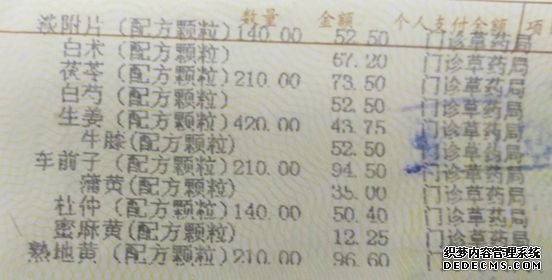 数量 金额 个人支付金额 项
淡附片(配方颗粒)140.00 52.50 门诊草药局
白术(配方颗粒) 67.20 门诊草药局
茯苓(配方颗粒)210.00 73.50 门诊草药局
白芍(配方颗粒) 52.50 门诊草药局
生姜(配方颗粒)420.00 43.75 门诊草药局
牛膝(配方颗粒) 52.50 门诊草药局
车前子(配方颗粒)210.00 94.50 门诊草药局
蒲黄(配方颗粒) 35.00 门诊草药局
杜仲(配方颗粒)140.00 50.40 门诊草药局
蜜麻黄(配方颗粒) 12.25 门诊草药局
熟地黄(配方颗粒)210.00 96.60 门诊草药局
织梦内容管理系统
DEDECMS.COM